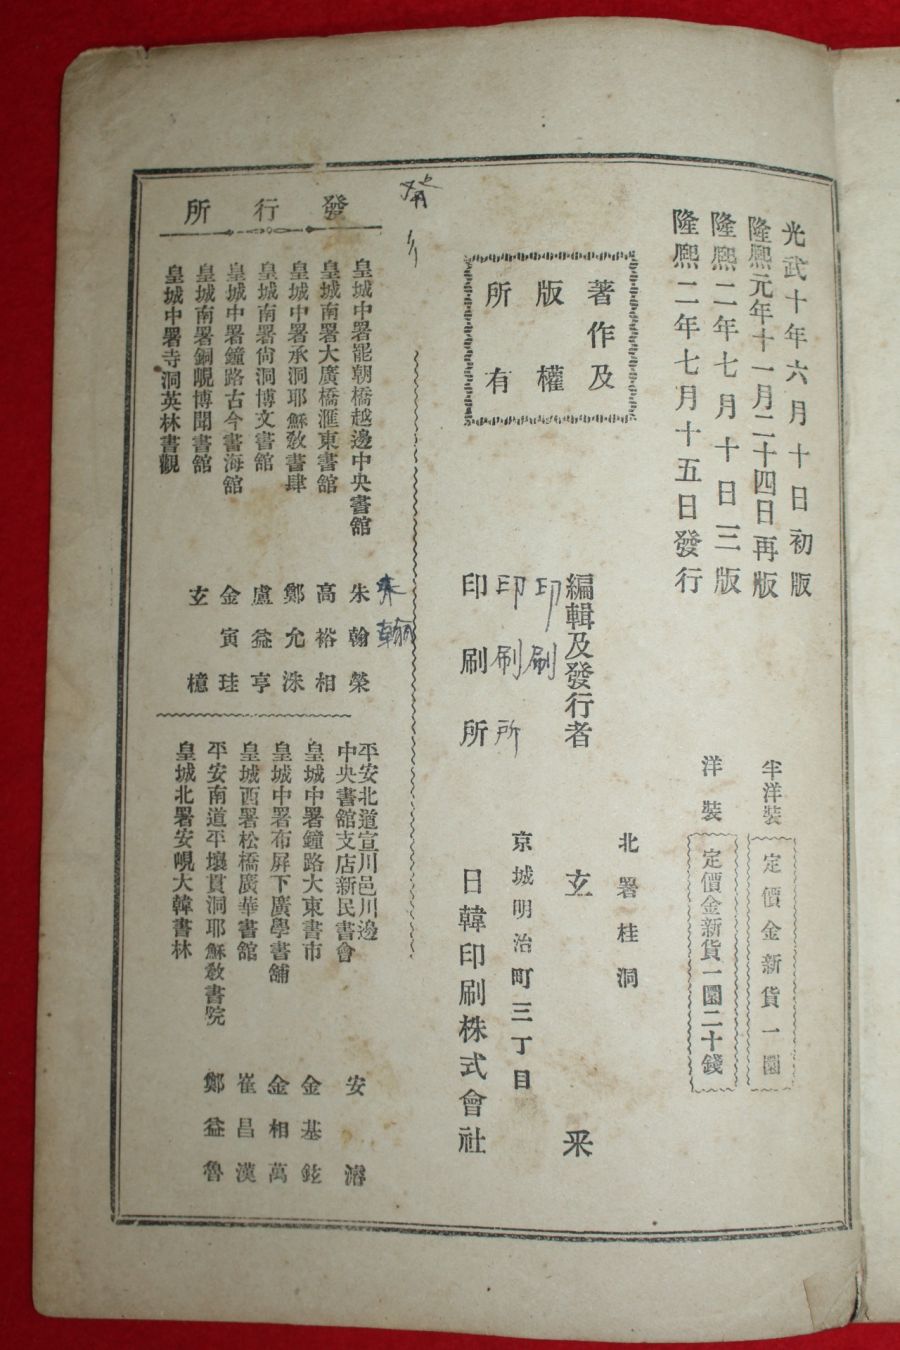 光武十年六月十日初版
隆熙元年十一月二十四日再版
隆熙二年七月十日三版
隆熙二年七月十五日發行
半洋裝
定價金新貨一圜
洋裝
定價金新貨一圜二十錢
著作及
版權
所有
北署桂洞
編輯及發行者
玄采
印刷
京城明治町三丁目
印刷所
印刷所
日韓印刷株式會社
發行所
皇城中署罷朝橋越邊中央書舘 朱翰榮
朱翰
皇城南署大廣橋滙東書舘 高裕相
皇城中署承洞耶穌敎書肆 鄭允洙
皇城南署尙洞博文書舘 盧益亨
皇城中署鐘路古今書海舘 金寅珪
皇城南署銅峴博聞書舘 玄檍
皇城中署寺洞英林書觀
平安北道宣川邑川邊
中央書舘支店新民書會 安濬
皇城中署鐘路大東書市 金基鉉
皇城中署布屏下廣學書舖 金相萬
皇城西署松橋廣華書舘 崔昌漢
平安南道平壤貫洞耶穌敎書院 鄭益魯
皇城北署安峴大韓書林